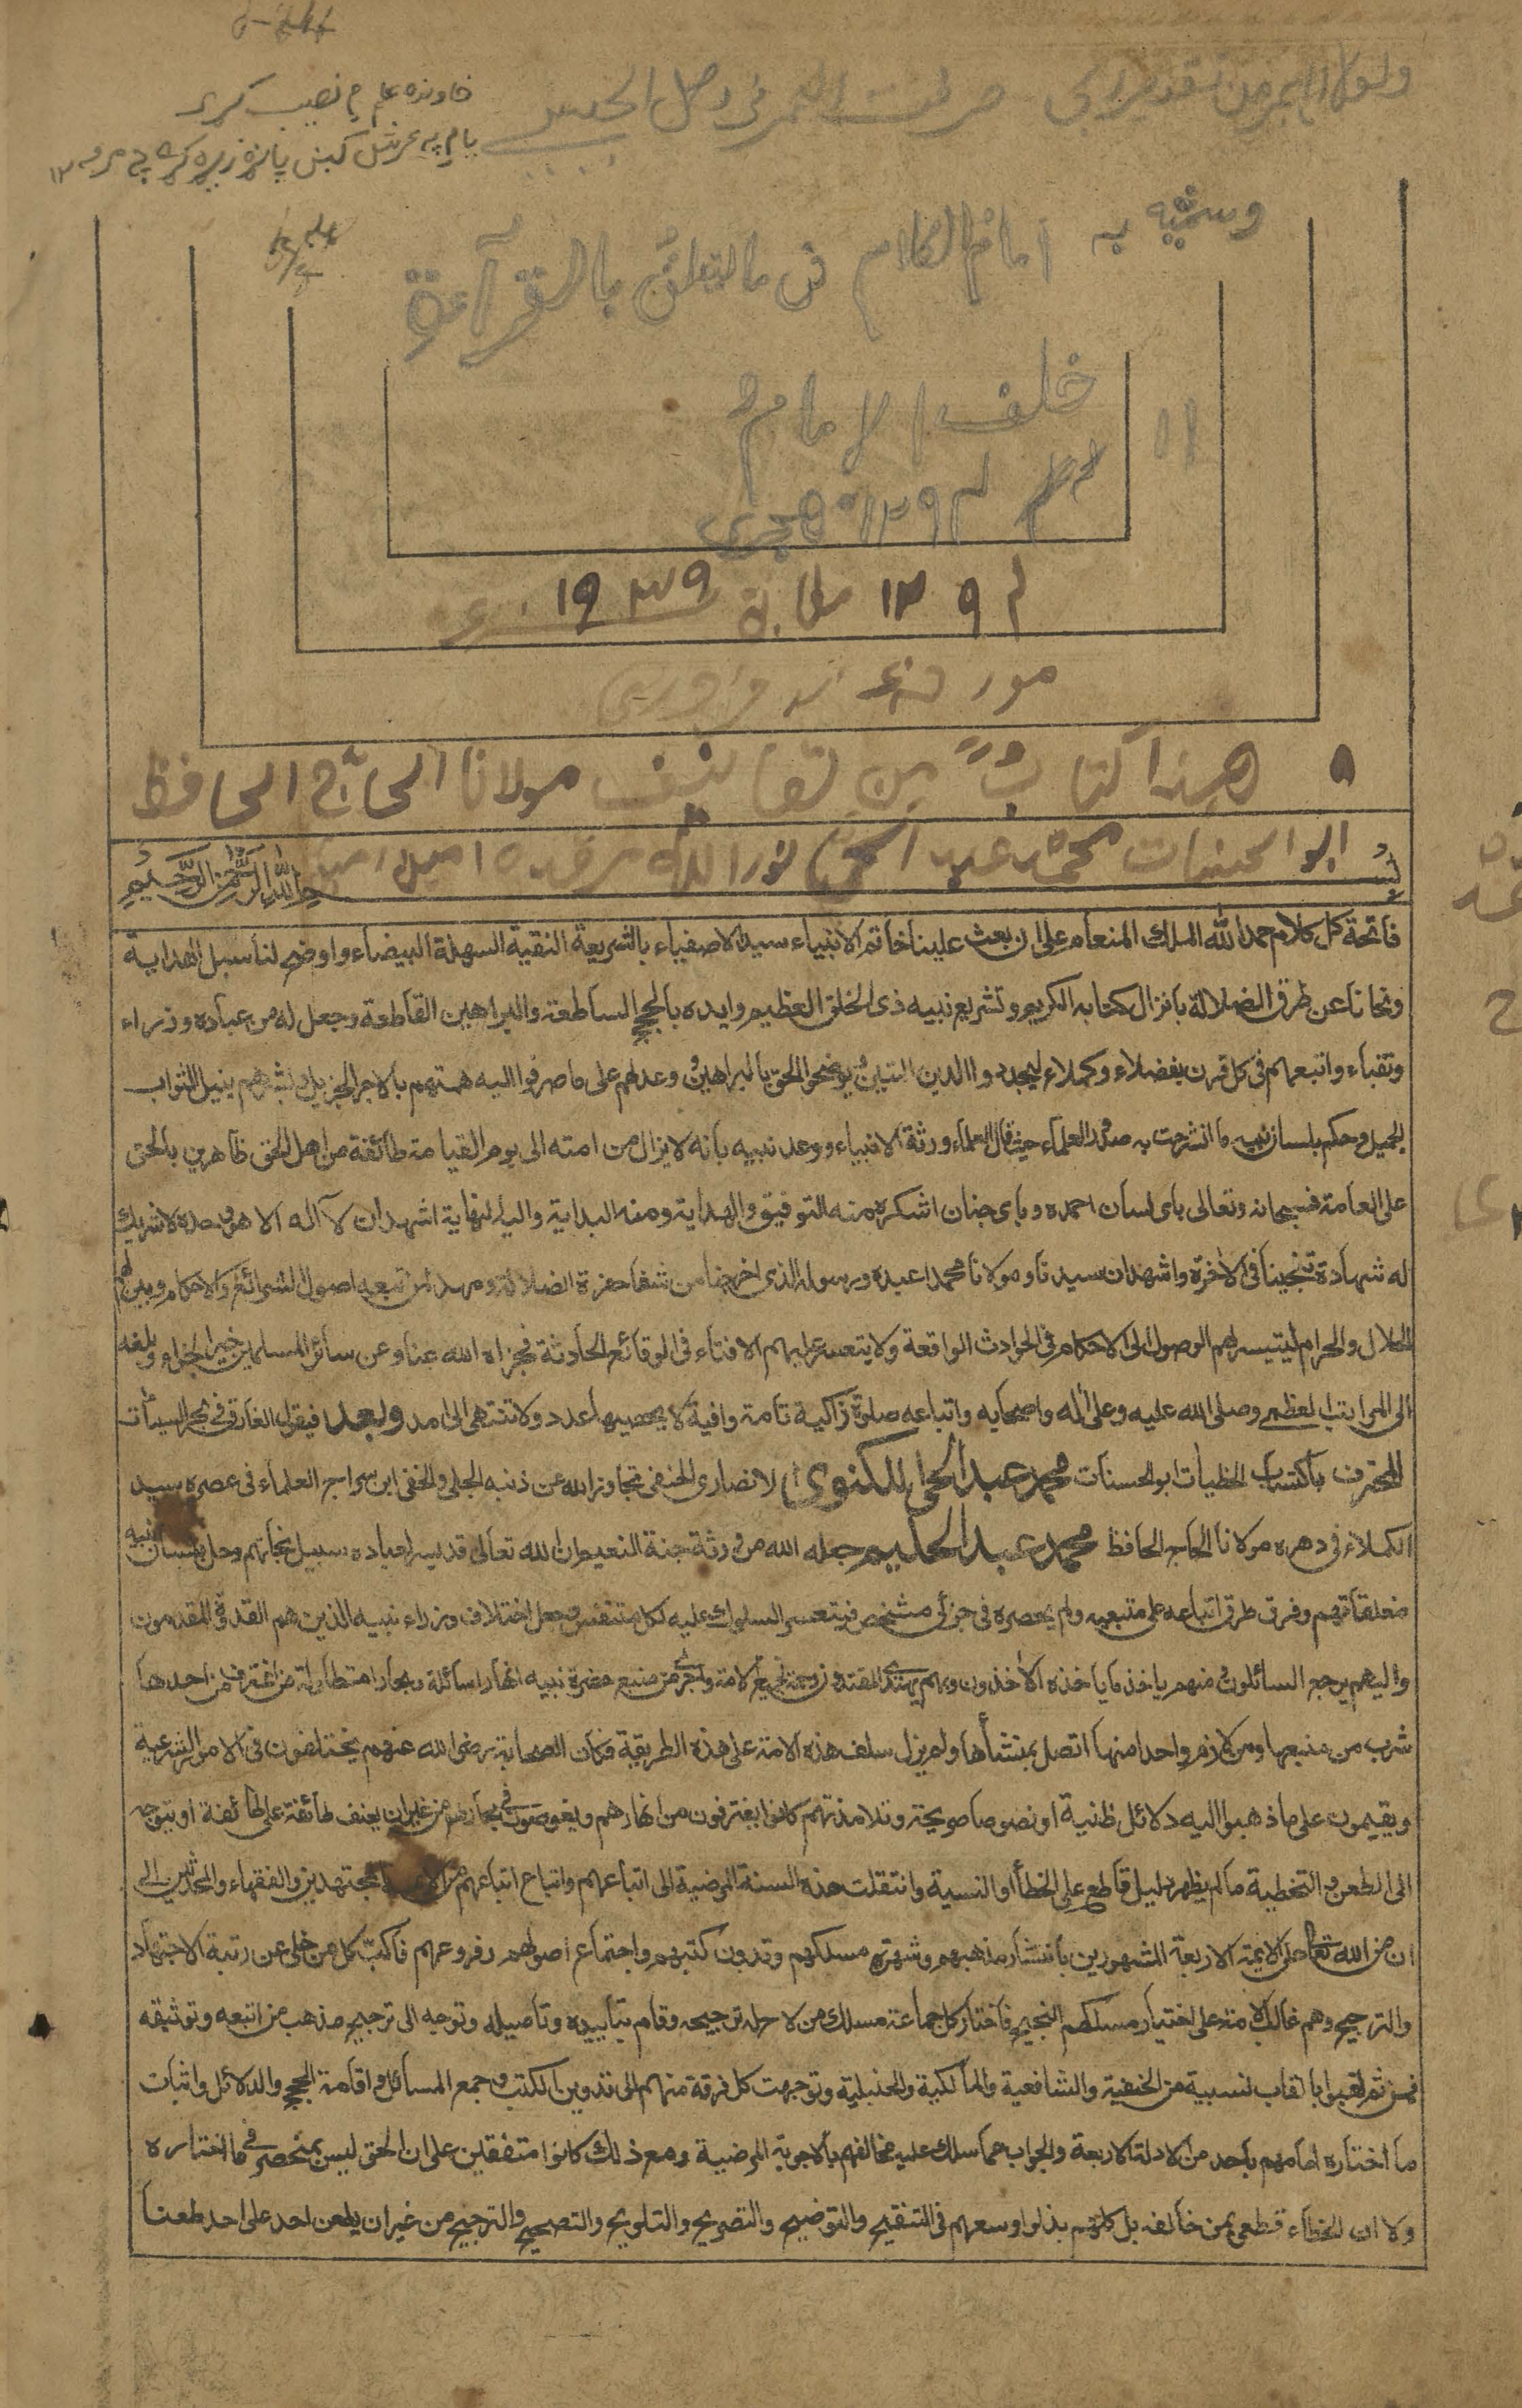 خاوندہ علم م نصیب کړی
وسمیته به امام الکلام فی ما یتعلق بالقرآءة
خلف الامام
هجری
مطابق ١٩٣٩ ء
هذا كتاب من تصانيف مولانا الحاج الحافظ
ابو الحسنات محمد عبد الحی نور الله مرقده امين
بسم الله الرحمن الرحيم
فاتحة كل كلام حمد الله الملك المنعام على ان بعث علينا خاتم الانبياء سيد الاصفياء بالشريعة النقية السهلة البيضاء واوضح لنا سبل الهداية
ونجانا عن طرق الضلالة بانزال كتابه الكريم وتشريع نبيه ذى الخلق العظيم وايده بالحجج الساطعة والبراهين القاطعة وجعل له من عباده وزراء
ونقباء واتبعهم فى كل قرن بفضلاء وكملاء ليجددوا الدين المتين ويوضحوا الحق بالبراهين وعدلهم على ما صرفوا اليه همتهم بالاجر الجزيل وبشرهم بنيل الثواب
الجميل وحكم بلسان نبيه ما انشرحت به صدور العلماء حيث قال العلماء ورثة الانبياء ووعد نبيه بانه لا يزال من امته الى يوم القيامة طائفة من اهل الحق ظاهرين بالحق
على العامة فسبحانه وتعالى باى لسان احمده وباى جنان اشكره منه التوفيق والهداية ومنه البداية واليه النهاية اشهد ان لا آله الا هو وحده لا شريك
له شهادة تنجينا فى الآخرة واشهد ان سيدنا ومولانا محمدا عبده ورسوله الذى اخرجنا من شفا حفرة الضلالة ومهد لمن تبعه اصول الشرائع والاحكام وبين لهم
الحلال والحرام ليتيسر لهم الوصول الى الاحكام فى الحوادث الواقعة ولا يتعسر عليهم الافتاء فى الوقائع الحادثة فجزاه الله عنا وعن سائر المسلمين خير الجزاء وبلغه
الى المراتب العظمى وصلى الله عليه وعلى اله واصحابه واتباعه صلوة زاكية تامة وافية لا يحصيها عدد ولا تنتهى الى امد وبعد فيقول الغارق فى بحر السيئات
المحترف باكتساب الخطيات ابو الحسنات محمد عبد الحى اللكنوى الانصارى الحنفى تجاوز الله عن ذنبه الجلى والخفى ابن سراج العلماء فى عصره سيد
الكملاء فى دهره مولانا الحاج الحافظ محمد عبد الحليم جعله الله من ورثة جنة النعيم ان الله تعالى قد يسر لعباده سبيل نجاتهم وحل بلسان نبيه
مغلقاتهم وفرق طرق اتباعه على متبعيه ولم يحصره فى جزئى مشخص فيتعسر السلوك عليه لكل متنفس وجعل اختلاف وزراء نبيه الذين هم القدوة المقدمون
واليهم يرجع السائلون منهم ياخذ ما ياخذه الآخذون وبهم يهتدى المقتدون رحمة لجميع الامة واجرى من منبع حضرة نبيه انهارا سائلة وبحارا متطاولة من اغترف من احدها
شرب من منبعها ومن لازم واحدا منها اتصل بمنشأها ولم يزل سلف هذه الامة على هذه الطريقة فكان الصحابة رضى الله عنهم يختلفون فى الامور الشرعية
ويقيمون على ما ذهبوا اليه دلائل ظنية او نصوصا صريحة وتلامذتهم كانوا يغترفون من انهارهم ويغوصون فى بحارهم من غير ان يعنف طائفة على طائفة او يتوجه
الى الطعن والتخطية ما لم يظهر دليل قاطع على الخطأ او النسية وانتقلت هذه السنة المرضية الى اتباعهم واتباع اتباعهم من الائمة المجتهدين والفقهاء والمحدثين الى
ان من الله تعالى على الايمة الاربعة المشهورين بانتشار مذهبهم وشهرة مسلكهم وتدون كتبهم واجتماع اصولهم وفروعهم فاكب كل من خلى عن رتبة الاجتهاد
والترجيح وهم غالب الامة على اختيار مسلكهم النجيح فاختار كل جماعة مسلك من لاح له ترجيحه وقام بتاييده وتاصيله وتوجه الى ترجيح مذهب من اتبعه وتوثيقه
فمن ثم لقبوا بالقاب نسبية من الحنفية والشافعية والمالكية والحنبلية وتوجهت كل فرقة منهم الى تدوين الكتب وجمع المسائل واقامة الحجج والدلائل واثبات
ما اختاره امامهم باحد من الادلة الاربعة والجواب عما سلك عليه مخالفهم بالاجوبة المرضية ومع ذلك كانوا متفقين على ان الحق ليس بمنحصر فى ما اختاره
ولا ان الخطاء قطعى بمن خالفه بل كلهم بذلوا وسعهم فى التنقيح والتوضيح والتصريح والتلويح والتصحيح والترجيح من غير ان يطعن احد على احد طعنا